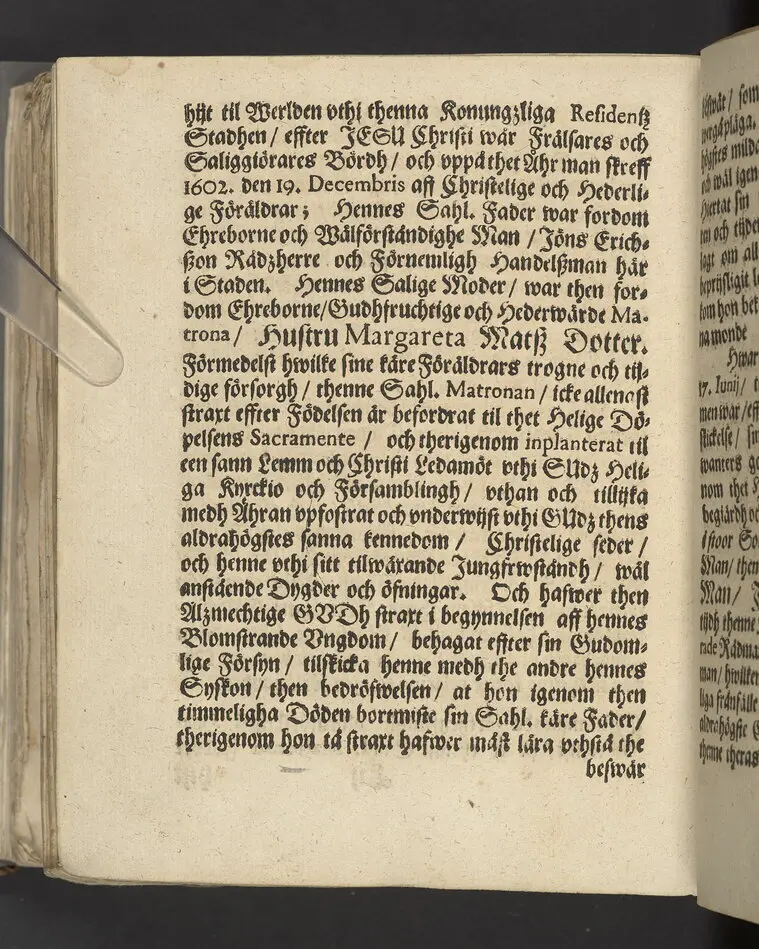 hijt til Werlden vthi thenna Konungzliga Residentz
Stadhen / effter JESU Christi wår Frälsares och
Saliggiörares Bördh / och vppå thet Åhr man skreff
1602. den 19. Decembris aff Christelige och Hederli⸗
ge Föräldrar; Hennes Sahl. Fader war fordom
Ehreborne och Wälförståndighe Man / Jöns Erich⸗
ßon Rådzherre och Förnemligh Handelßman här
i Staden. Hennes Salige Moder / war then for⸗
dom Ehreborne/Gudhfruchtige och Hederwärde Ma-
trona / Hustru Margareta Matß Dotter.
Förmedelst hwilke sine käre Föräldrars trogne och tij⸗
dige försorgh / thenne Sahl. Matronan / icke allenast
straxt effter Födelsen är befordrat til thet Helige Dö⸗
pelsens Sacramente / och therigenom inplanterat til
een sann Lemm och Christi Ledamöt vthi GUdz Heli⸗
ga Kyrckio och Församblingh / vthan och tillijka
medh Åhran vpfostrat och vnderwijst vthi GUdz thens
aldrahögstes sanna kennedom / Christelige seder /
och henne vthi sitt tilwäxande Jungfrwståndh / wäl
anstående Dygder och öfningar. Och hafwer then
Alzmechtige GVDh straxt i begynnelsen aff hennes
Blomstrande Vngdom / behagat effter sin Gudom⸗
lige Försyn / tilskicka henne medh the andre hennes
Syskon / then bedröfwelsen / at hon igenom then
timmeligha Döden bortmiste sin Sahl. käre Fader/
therigenom hon tå straxt hafwer måst lära vthstå the
beswär